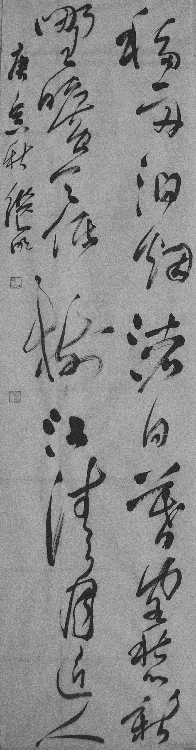 移舟泊烟渚日暮客愁新
野曠天低樹江清月近人
庚寅秋